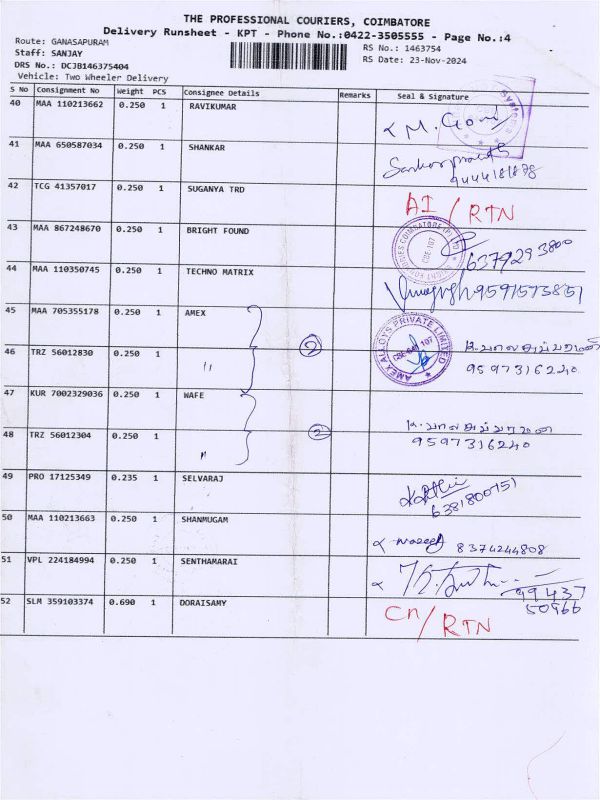 THE PROFESSIONAL COURIERS, COIMBATORE
Delivery Runsheet - KPT - Phone No.:0422-3505555 - Page No.:4
Route: GANASAPURAM
RS No.: 1463754
Staff: SANJAY
RS Date: 23-Nov-2024
DRS No.: DCJB146375404
Vehicle: Two Wheeler Delivery
S No Consignment No Weight PCS Consignee Details Remarks Seal & Signature
40 MAA 110213662 0.250 1 RAVIKUMAR
41 MAA 650587034 0.250 1 SHANKAR
9444181878
42 TCG 41357017 0.250 1 SUGANYA TRD AI / RTN
43 MAA 867248670 0.250 1 BRIGHT FOUND 6379293800
44 MAA 110350745 0.250 1 TECHNO MATRIX 9591573851
45 MAA 705355178 0.250 1 AMEX
AMEX ALLOYS PRIVATE LIMITED
46 TRZ 56012830 0.250 1 " 2 9597316240
47 KUR 7002329036 0.250 1 WAFE
48 TRZ 56012304 0.250 1 " 2 9597316240
49 PRO 17125349 0.235 1 SELVARAJ 6381800751
50 MAA 110213663 0.250 1 SHANMUGAM 8374244808
51 VPL 224184994 0.250 1 SENTHAMARAI
99437
50966
52 SLM 359103374 0.690 1 DORAISAMY Cn/RTN